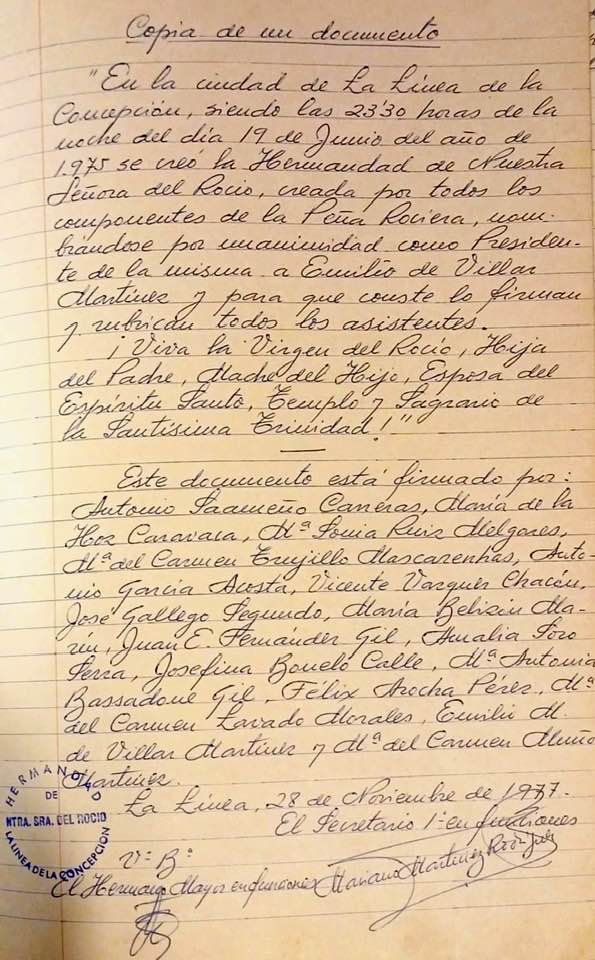 Copia de un documento
"En la ciudad de La Línea de la
Concepción, siendo las 23'30 horas de la
noche del día 19 de Junio del año de
1.975 se creó la Hermandad de Nuestra
Señora del Rocio, creada por todos los
componentes de la Peña Rociera, nom-
brándose por unanimidad como Presiden-
te de la misma a Emilio de Villar
Martinez y para que conste lo firman
y rubrican todos los asistentes.
¡Viva la Virgen del Rocío, Hija
del Padre, Madre del Hijo, Esposa del
Espíritu Santo, Templo y Sagrario de
la Santísima Trinidad!"
Este documento está firmado por:
Antonio Saameño Carreras, María de la
Hoz Caravaca, Mª Sonia Ruiz Melgares,
Mª del Carmen Trujillo Mascarenhas, Anto-
nio García Acosta, Vicente Vazquez Chacón,
José Gallego Segundo, María Belizón Ma-
rín, Juan E. Fernández Gil, Amalia Soro
Serra, Josefina Bonelo Calle, Mª Antonia
Bassadone Gil, Félix Arocha Pérez, Mª
del Carmen Lavado Morales, Emilio M.
de Villar Martinez y Mª del Carmen Muño
Martinez.
La Línea, 28 de Noviembre de 1977.
El Secretario 1º en funciones
Vº Bº
El Hermano Mayor en funciones Mariano Martinez Rodríguez
HERMANDAD
DE
NTRA. SRA. DEL ROCIO
LA LINEA DE LA CONCEPCION